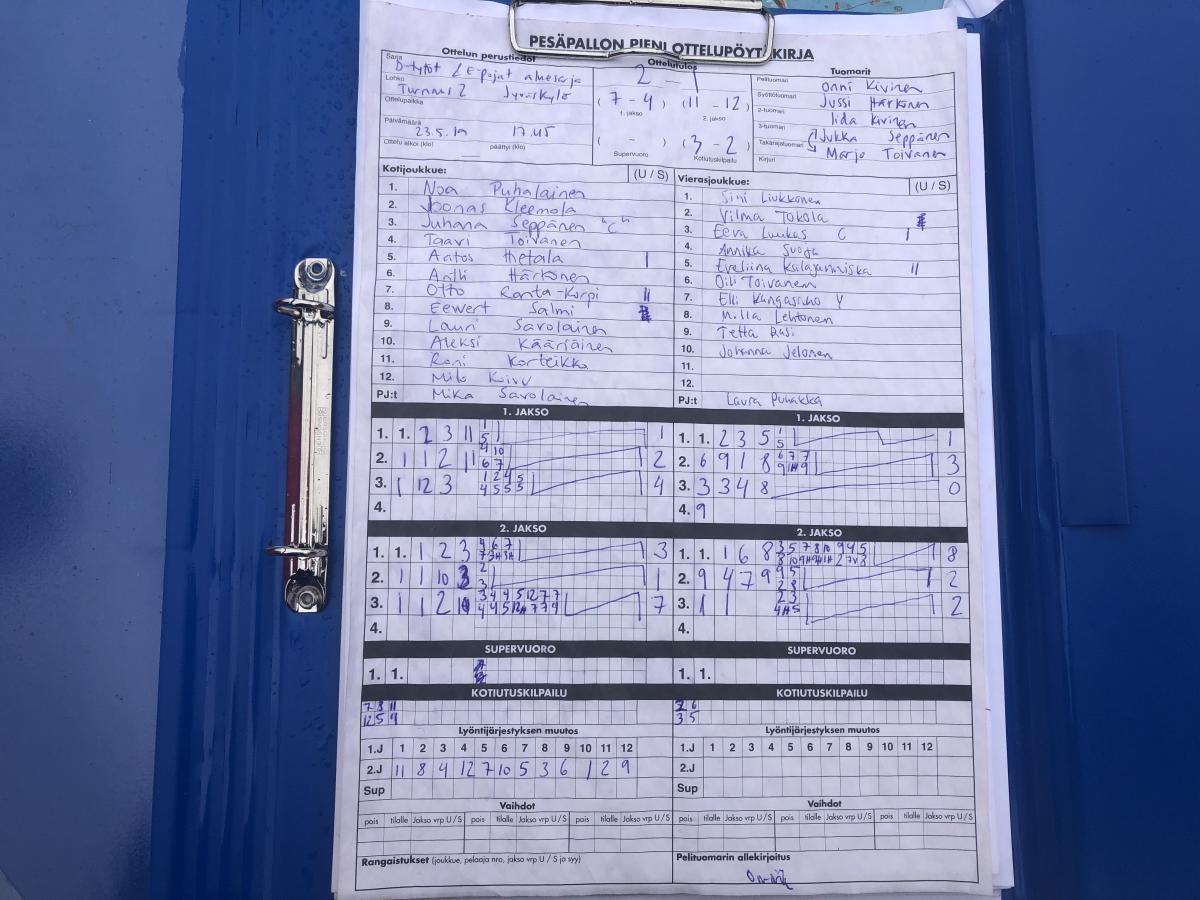 PESÄPALLON PIENI OTTELUPÖYTÄKIRJA
Ottelun perustiedot
Sarja
D-tytöt / E-pojat aluesarja
Lohko
Turnaus 2 Jyväskylä
Ottelupaikka
Päivämäärä
23.5.19 17.45
Ottelu alkoi (klo) päättyi (klo)
Ottelutulos
2 - 1
(7 - 4) (11 - 12)
1. jakso 2. jakso
( - ) (3 - 2)
Supervuoro Kotiutuskilpailu
Tuomarit
Pelituomari Onni Kivinen
Syöttötuomari Jussi Härkönen
2-tuomari Iida Kivinen
3-tuomari Jukka Seppänen
Takarajatuomari Marjo Toivanen
Kirjuri
Kotijoukkue: (U / S)
1. Noa Puhalainen
2. Joonas Kleemola
3. Juhana Seppänen "C"
4. Taavi Toivanen
5. Aatos Hietala I
6. Antti Härkönen
7. Otto Ranta-Korpi II
8. Eewert Salmi
9. Lauri Savolainen
10. Aleksi Kääriäinen
11. Roni Korteikko
12. Milo Koivu
PJ:t Mika Savolainen
Vierasjoukkue: (U / S)
1. Sini Liukkonen
2. Vilma Tokola
3. Eeva Luukas C I
4. Annika Suoja
5. Eveliina II
6. Oili Toivanen
7. Elli Kangasniho
8. Milla Lehtonen
9. Tetta Rasi
10. Johanna Jelonen
11.
12.
PJ:t Laura Puhakka
1. JAKSO
1. 1. 2 3 11 1 5 1
2. 1 1 2 11 4 10 6 7 2
3. 1 12 3 1 2 4 5 4 5 5 5 4
4.
1. JAKSO
1. 1. 2 3 5 1 5 1
2. 6 9 1 8 6 7 7 9 1H 9 3
3. 3 3 4 8 0
4. 9
2. JAKSO
1. 1. 1 2 3 4 6 7 3
2. 1 1 10 3 2 3 1
3. 1 1 2 3 4 4 5 12 7 7 4 4 5 12H 7 7 9 7
4.
2. JAKSO
1. 1. 1 6 8 3 5 7 8 10 9 4 5 8
2. 9 4 7 9 9 5 2 8 2
3. 1 1 2 3 4H 5 2
4.
SUPERVUORO
1. 1.
SUPERVUORO
1. 1.
KOTIUTUSKILPAILU
7 8 11
12 5 4
KOTIUTUSKILPAILU
2 6
3 5
Lyöntijärjestyksen muutos
1.J 1 2 3 4 5 6 7 8 9 10 11 12
2.J 11 8 4 12 7 10 5 3 6 1 2 9
Sup
Lyöntijärjestyksen muutos
1.J 1 2 3 4 5 6 7 8 9 10 11 12
2.J
Sup
Vaihdot
pois tilalle Jakso vrp U/S pois tilalle Jakso vrp U/S pois tilalle Jakso vrp U/S
Vaihdot
pois tilalle Jakso vrp U/S pois tilalle Jakso vrp U/S pois tilalle Jakso vrp U/S
Rangaistukset (joukkue, pelaaja nro, jakso vrp U / S ja syy)
Pelituomarin allekirjoitus